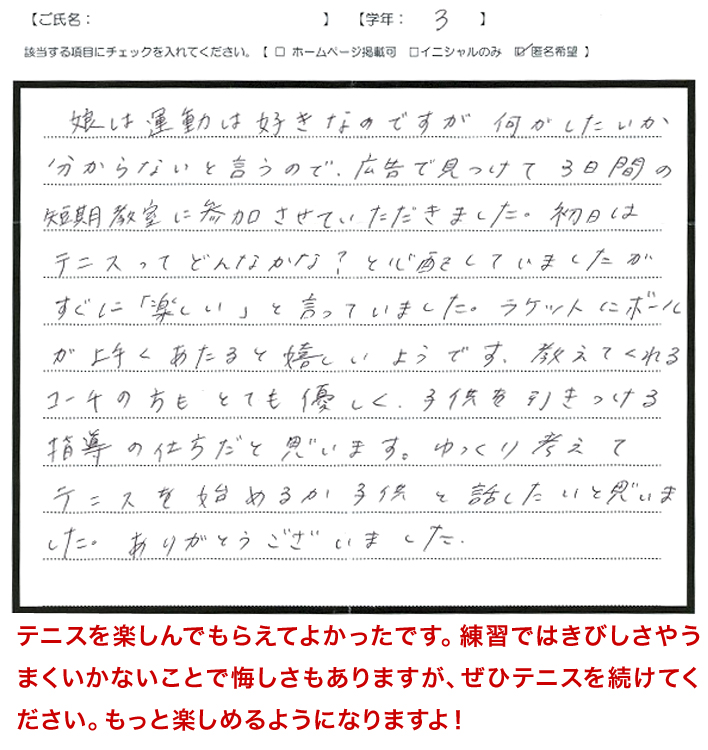 【ご氏名： 】 【学年： 3 】
該当する項目にチェックを入れてください。【 □ ホームページ掲載可 □イニシャルのみ ☑匿名希望 】
娘は運動は好きなのですが 何がしたいか
分からないと言うので、広告で見つけて 3日間の
短期教室に参加させていただきました。初日は
テニスってどんなかな？と心配していましたが
すぐに「楽しい」と言っていました。ラケットにボール
が上手くあたると嬉しいようです、教えてくれる
コーチの方もとても優しく、子供を引きつける
指導の仕方だと思います。ゆっくり考えて
テニスを始めるか子供と話したいと思いま
した。ありがとうございました．
テニスを楽しんでもらえてよかったです。練習ではきびしさやう
まくいかないことで悔しさもありますが、ぜひテニスを続けてく
ださい。もっと楽しめるようになりますよ！